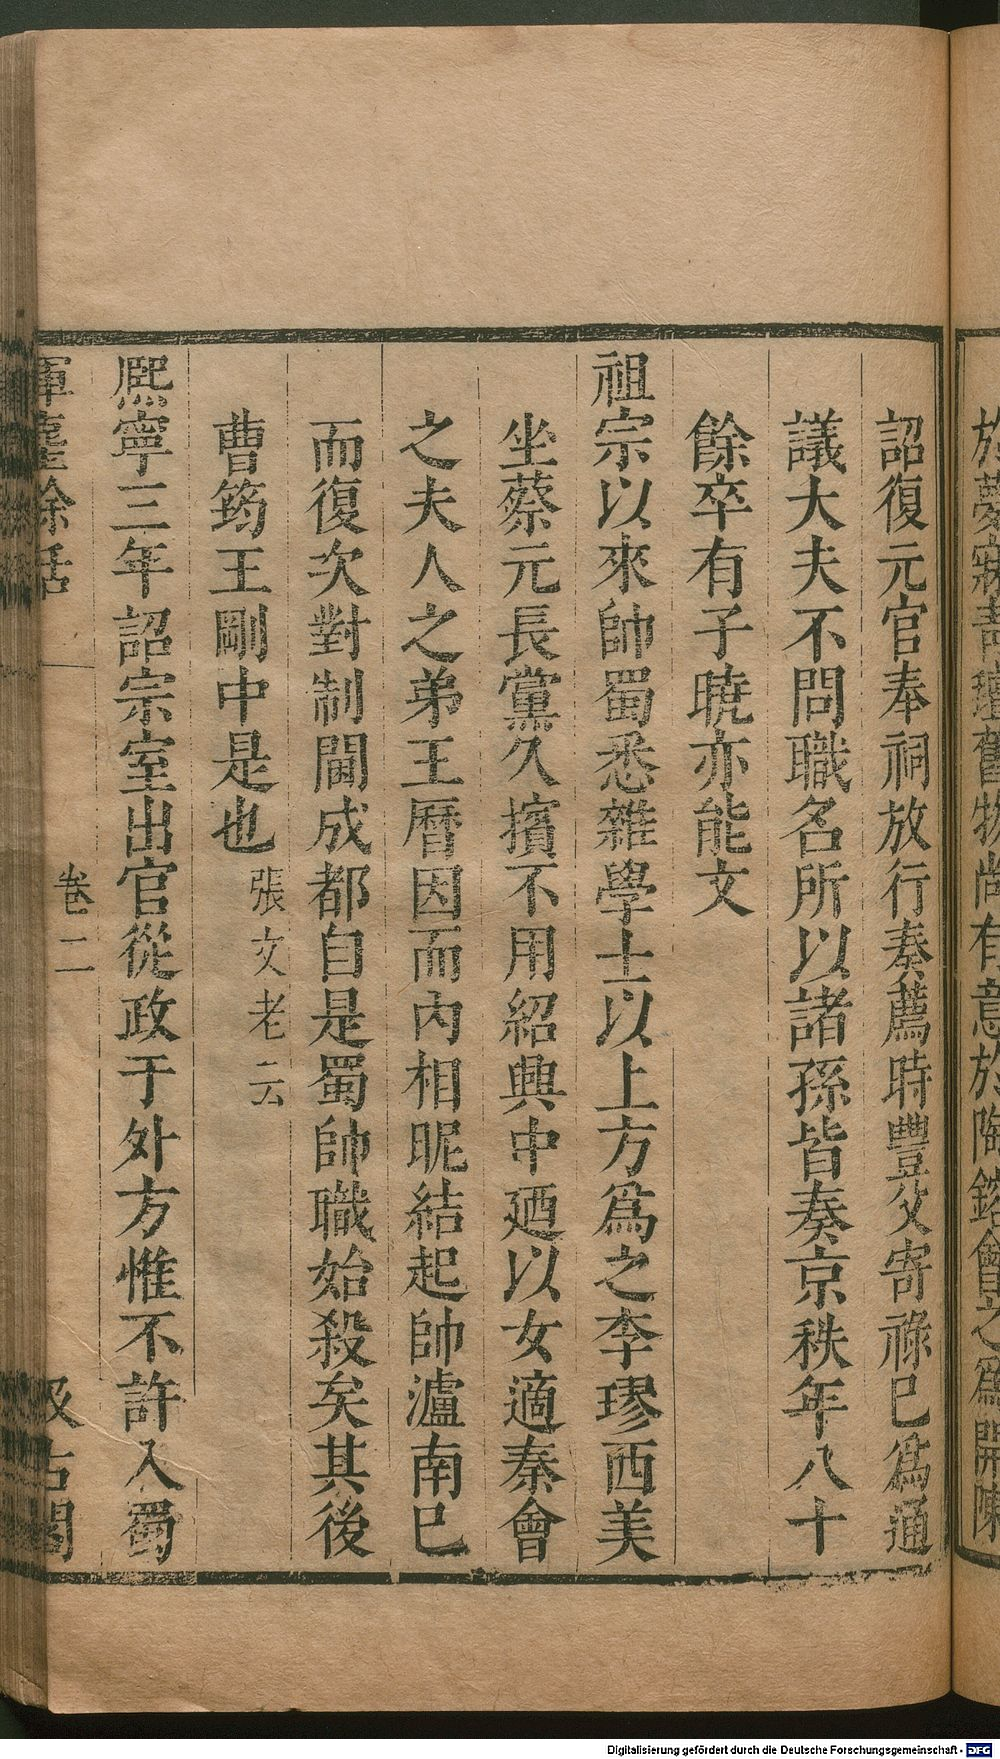 於夢寐青氊舊物尚有意於陶鎔會之爲開陳
詔復元官奉祠放行奏薦時豐父寄祿已爲通
議大夫不問職名所以諸孫皆奏京秩年八十
餘卒有子曉亦能文
祖宗以來帥蜀悉雜學士以上方爲之李璆西美
坐蔡元長黨久擯不用紹興中廼以女適秦會
之夫人之弟王曆因而內相昵結起帥瀘南已
而復次對制閫成都自是蜀帥職始殺矣其後
曹筠王剛中是也張文老云
熈寧三年詔宗室出官從政于外方惟不許入蜀
揮麈餘話
卷二
汲古閣
Digitalisierung gefördert durch die Deutsche Forschungsgemeinschaft - DFG